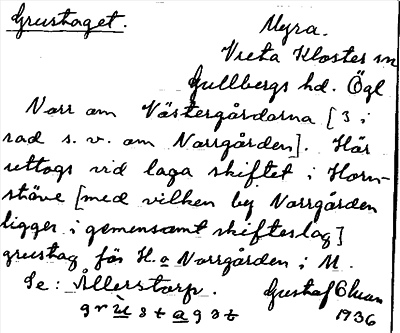 Grustaget.
Myra.
Vreta Kloster sn
Gullbergs hd. Ögl
Norr om Västergårdarna [3 i
rad s. v. om Norrgården]. Här
uttogs vid laga skiftet i Horn-
stäve [med vilken by Norrgården
ligger i gemensamt skifteslag]
grustag för H. o Norrgården i M.
Se: Ållerstorp. Gustaf Ohman
grùstagǝt 1936